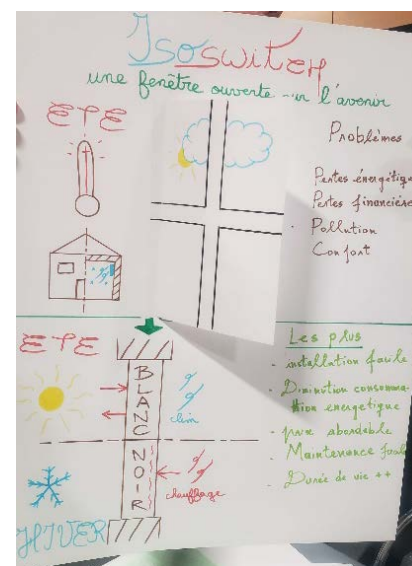 Isoswitch
une fenêtre ouverte sur l'avenir
ETE
Problèmes
Pertes énergétiqu
Pertes financière
. Pollution
Confort
ETE
BLANC
clim
NOIR
chauffage
HIVER
Les plus
- installation facile
- Diminution consomma
tion energetique
- prix abordable
- Maintenance facil
- Durée de vie ++